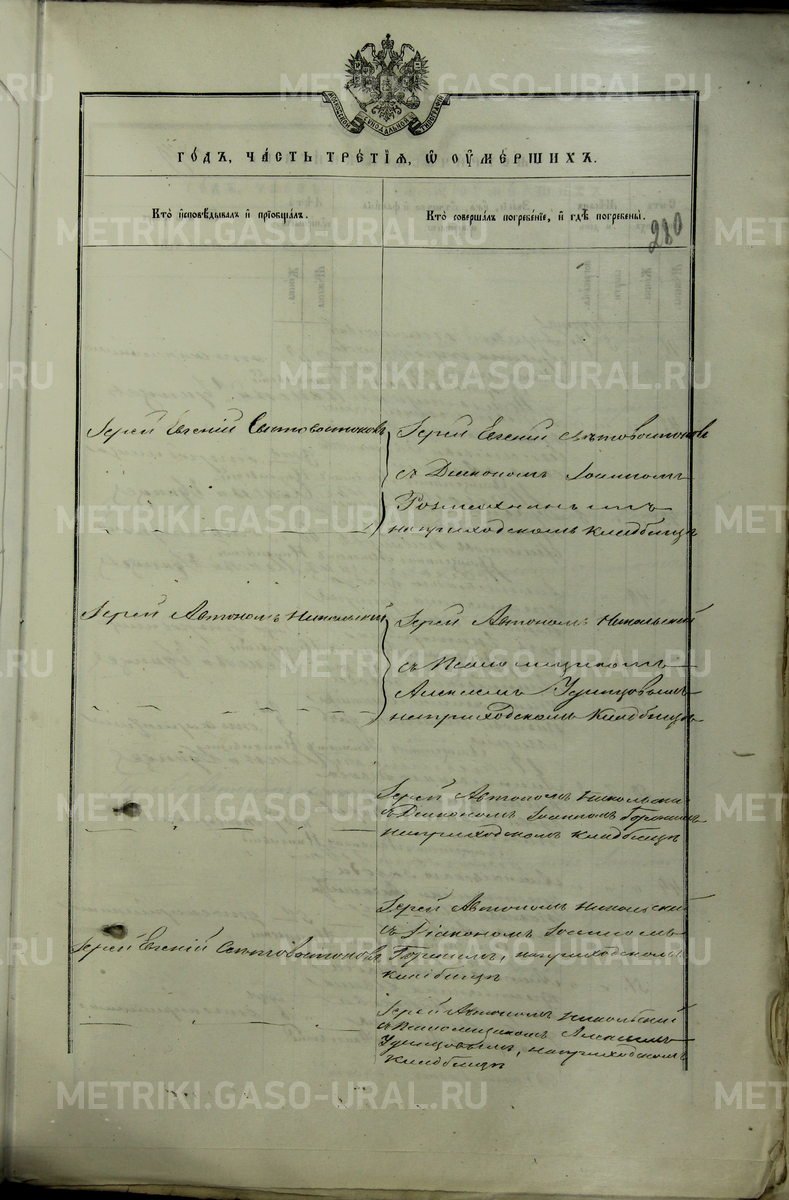 METRIKI.GASO-URAL.RU
ГО́ДЪ, ЧА́СТЬ ТРЕ́ТІѦ, Ѡ ОУМЕ́РШИХЪ.
Кто̀ и҆сповѣ́дывалъ и҆ прїѡбща́лъ.
Кто̀ соверша́лъ погребе́нїе, и҆ гдѣ̀ погребены̀.
280
Іерей Евгеній Свѣтовостоковъ
Іерей Евгеній Свѣтовостоковъ
съ Діакономъ Іоанномъ
на приходскомъ кладбищѣ
Іерей Автономъ Никольскій
Іерей Автономъ Никольскій
съ Псаломщикомъ
Алексѣемъ Удинцовымъ
на приходскомъ кладбищѣ
Іерей Автономъ Никольскій
съ Діакономъ Іоанномъ
на приходскомъ кладбищѣ
Іерей Евгеній Свѣтовостоковъ
Іерей Автономъ Никольскій
съ Діакономъ Іоанномъ
на приходскомъ
кладбищѣ
Іерей Автономъ Никольскій
съ Псаломщикомъ Алексѣемъ
Удинцовымъ, на приходскомъ
кладбищѣ